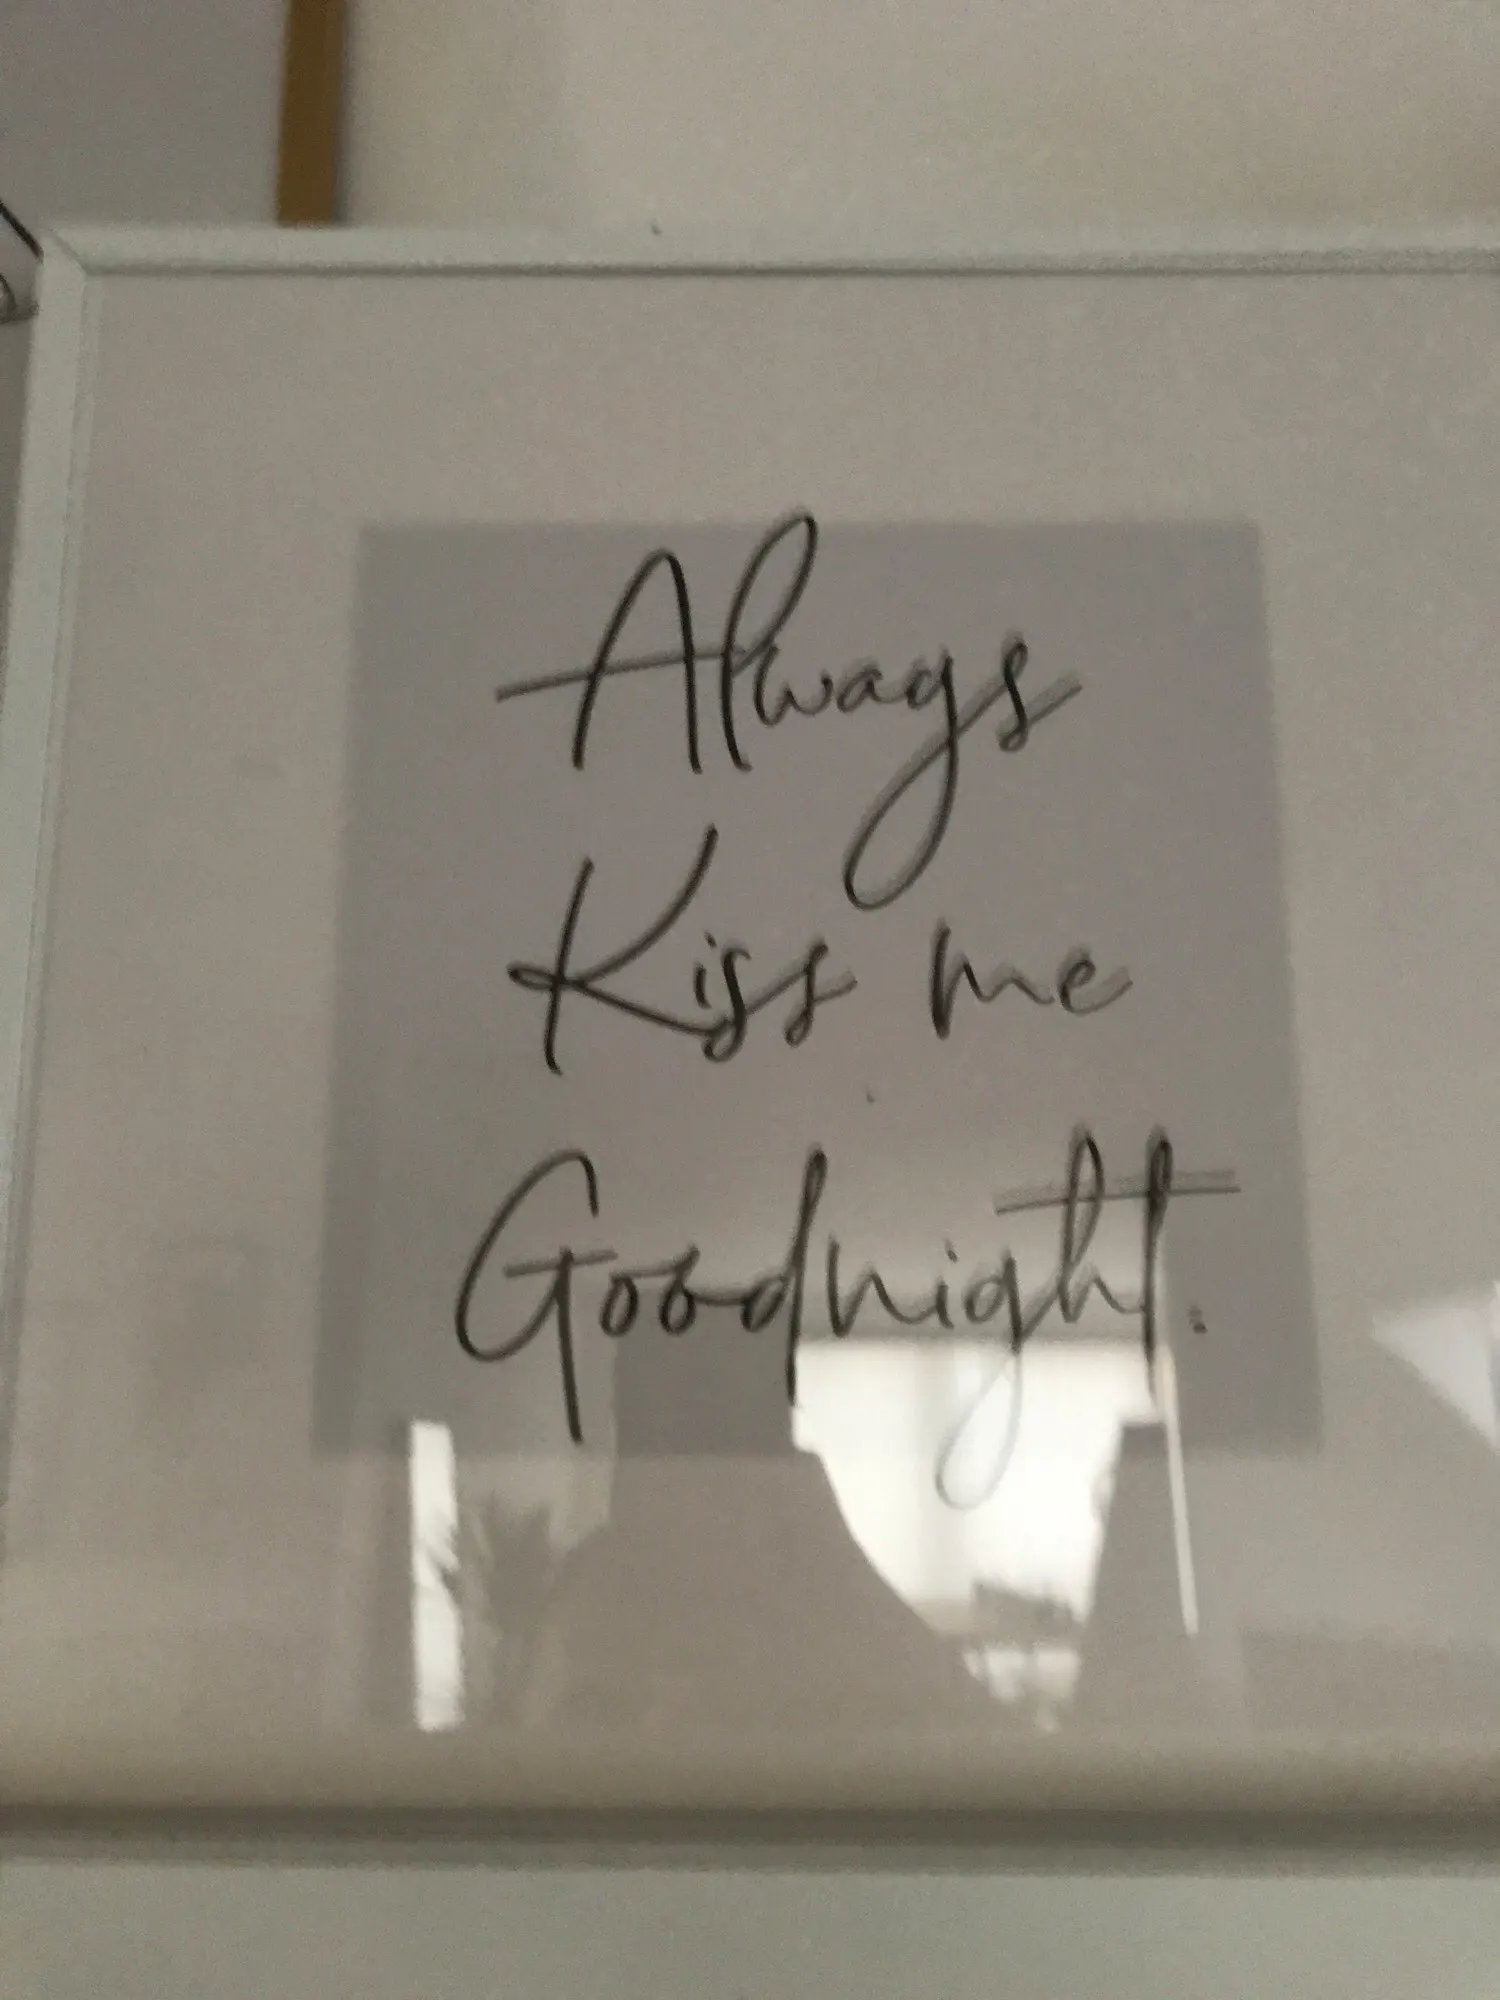 Always
Kiss me
Goodnight.